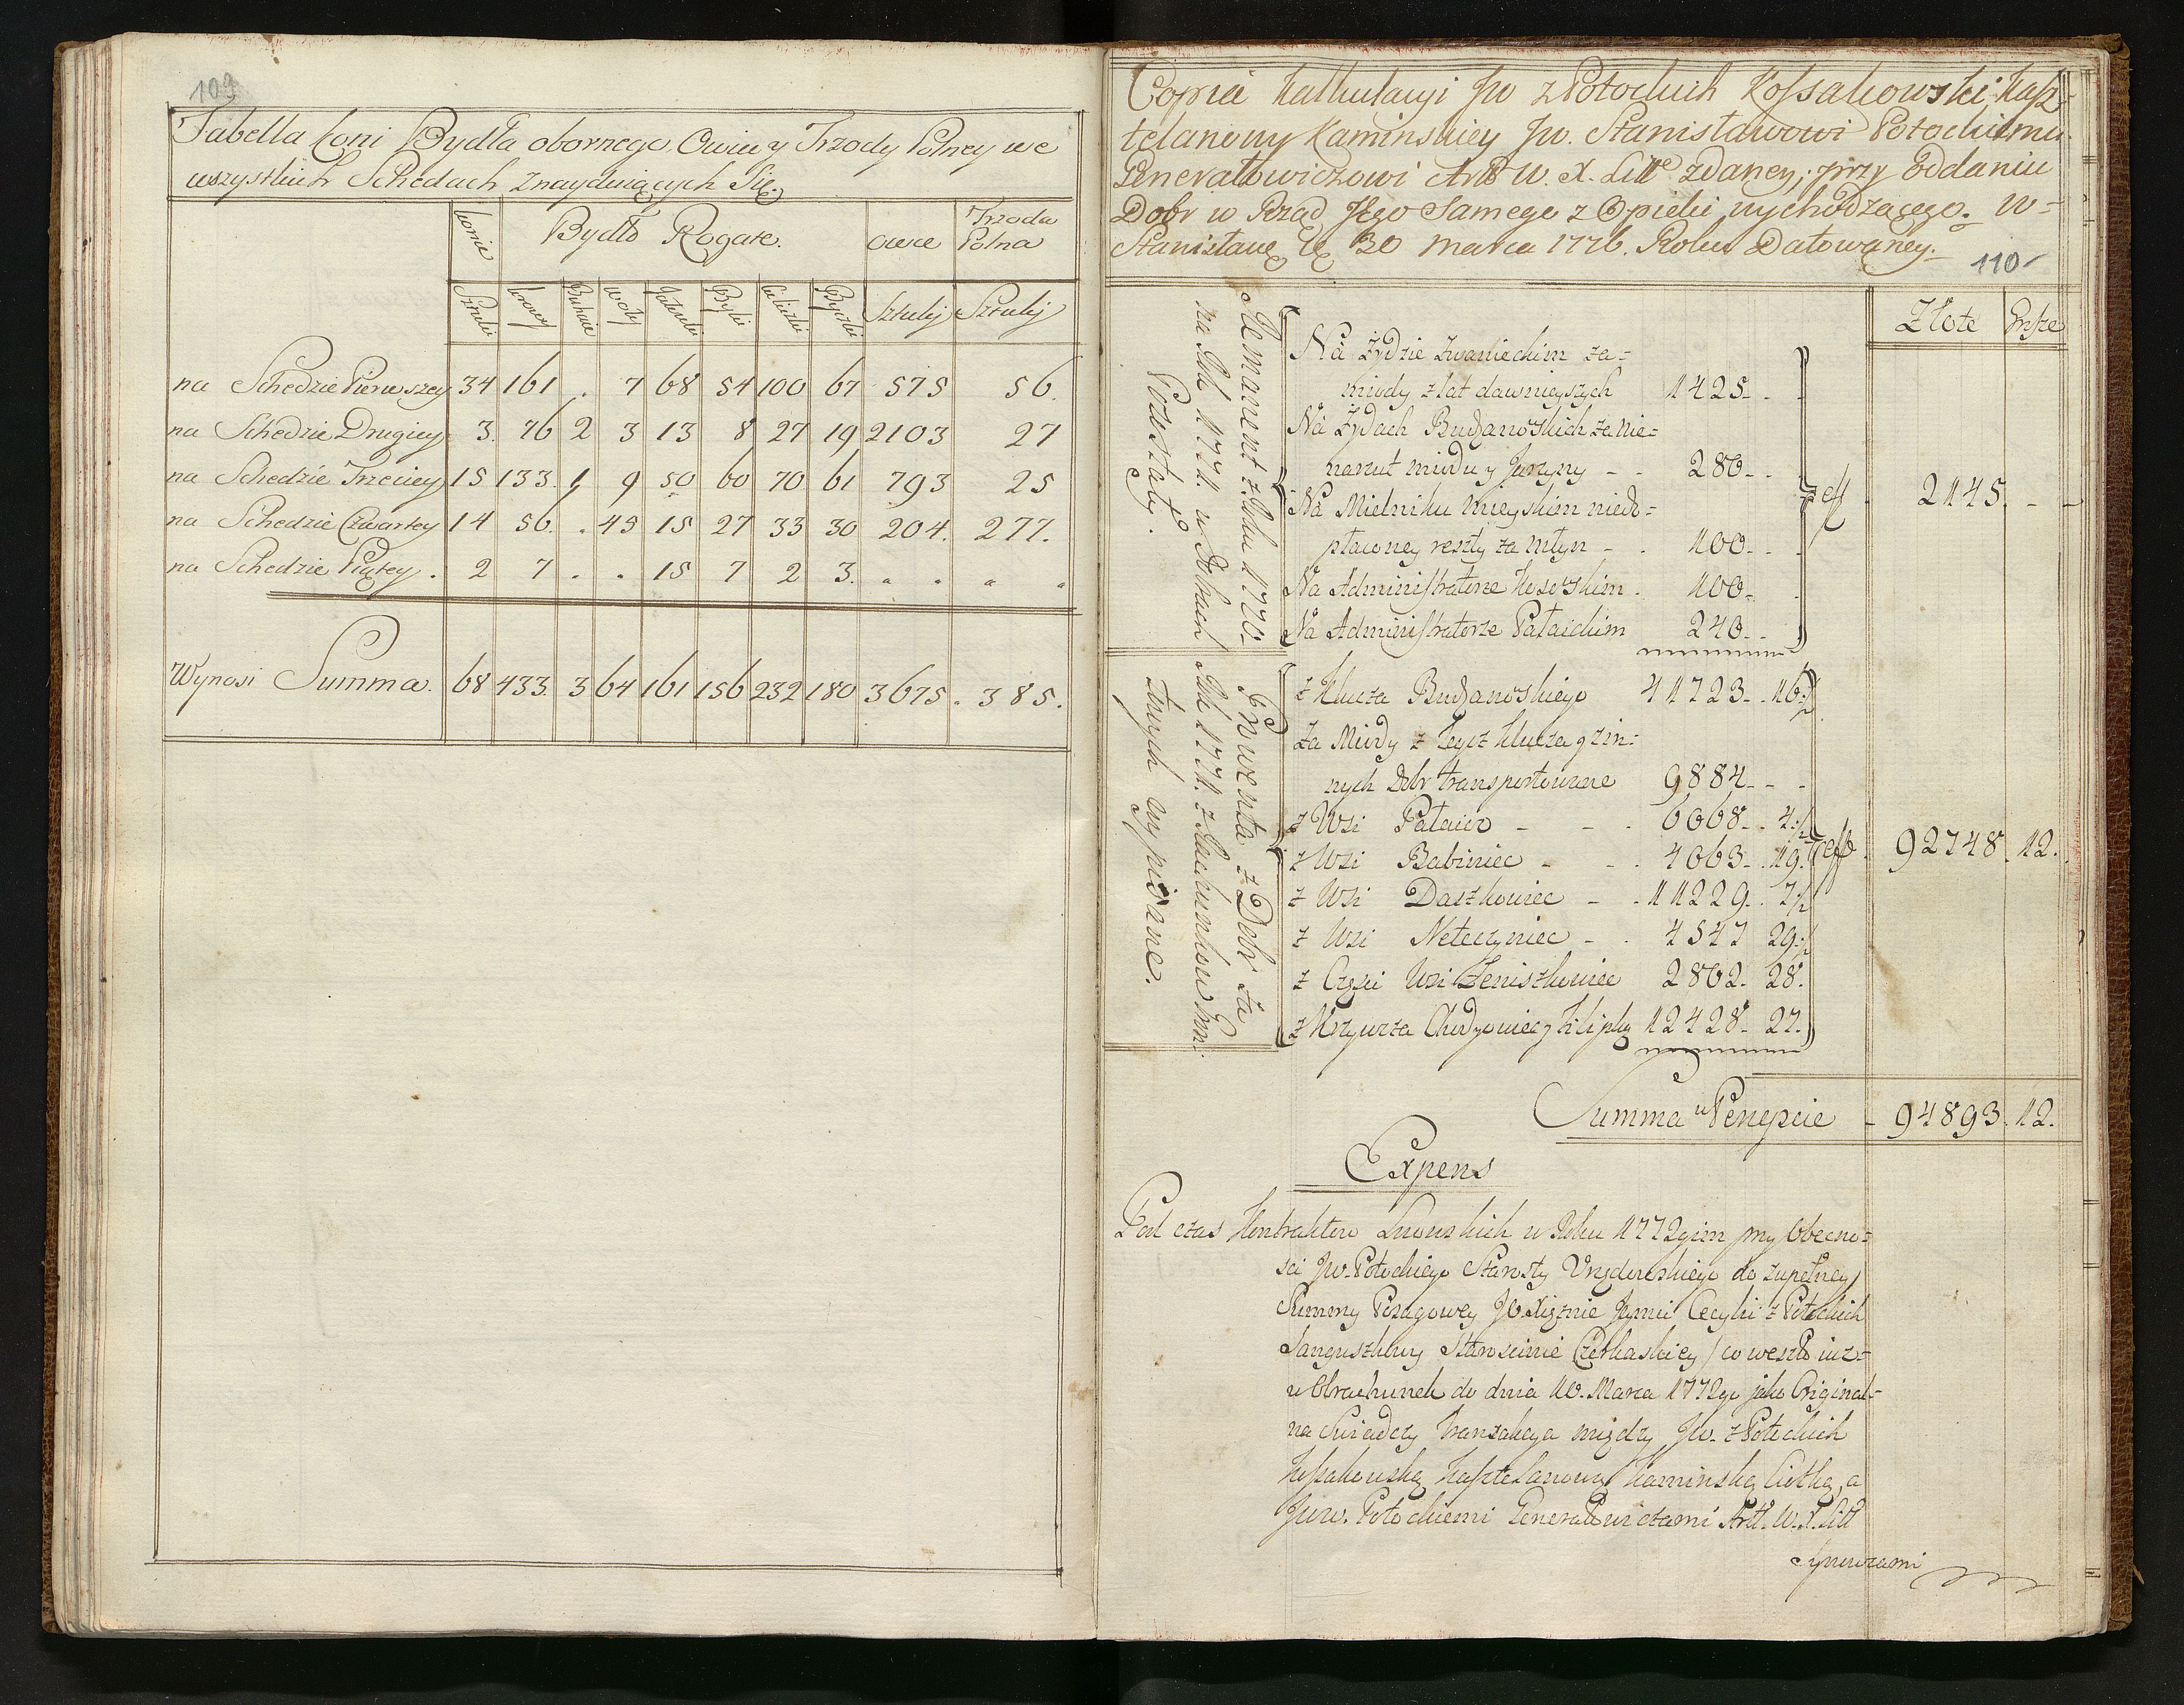 109
Tabella koni Bydła obornego, Owiec y Trzody Polney we
wszystkich Schedach znayduiących Się.
konie Bydło Rogate. owce Trzoda Polna
Sztuki krowy Buhaie woły Jałowki Byki Cieliczki Byczki Sztuky Sztuky
na Schedzie Pierwszey 34 161 . 7 68 54 100 67 575 56.
na Schedzie Drugiey 3. 76 2 3 13 8 27 19 2103 27
na Schedzie Trzeciey 15 133. 1 9 50 60 70 61 793 25
na Schedzie Czwartey 14 56. . 45 15 27 33 30 204. 277.
na Schedzie Piątey . 2 7 . . 15 7 2 3. " . " .
Wynosi Summa. 68 433. 3 64 161 156 232 180 3675. 385.
Copia kalkulacyi Jw z Potockich Kossakowski Kasz=
telanowy Kaminskiey Jw. Stanisławowi Potockiemu
Generałowiczowi Art W. X. Litte zdaney; przy Oddaniu
Dobr w Rząd Jego Samego z Opieki wychodzącego. W=
Stanisławę De 30 Marca 1776. Roku Datowaney.
110
Złote Grosze
Remanent z Roku 1770
na Rok 1771. w Dobrach
Pozostały.
Na Żydzie Zwanieckim za=
miody z lat dawnieyszych 1425. . .
Na Żydach Budzanowskich za nie=
narzut miodu y Jarzyny - - 280. .
Na Mielniku mieyskim niedo=
płaconey reszty za Młyn - . 100. . .
Na Administratorze Kosowskim . 100. .
Na Administratorze Pałaickim 240. .
eff . 2145. - -
Prowenta z Dobr za
Rok 1771. z Rachunkow Grun=
townych wypisane.
z Klucza Budzanowskiego 41723. . 16.½
Za Miody z tegoż Klucza y z in=
nych Dobr transportowane 9884. - -
z Wsi Pałaicz - - . 6068. . 4.½
z Wsi Babiniec - - . 4063. . 19.
z Wsi Daszkowiec - . 11229. . 7.½
z Wsi Neteczyniec - . 4547 29.½
z Częsci Wsi Zeniszkowiec 2802. 28.
z Krzywcza Chudyowiec y Filipky 12428. 27.
eff . 92748. 12.
Summa w Percepcie - 94893. 12.
Expens
Pod czas Kontraktow Lwowskich w Roku 1772gim przy Obecno=
sci Jw. Potockiego Starosty Urzędowskiego do zupełney
Summy Posagowey JO Xiężnie Jeymci Cecylii z Potockich
Sanguszkowy Staroscinie Czerkaskiey / co weszło iuz=
w Obrachunek do dnia 10. Marca 1772go jako Original=
na Swiadczy Tranzakcya między Jw. z Potockich
Kossakowską Kasztelanową Kaminską Ciotką, a
Jww. Potockiemi Generałowiczami Artt. W. X. Litt
Synowcami